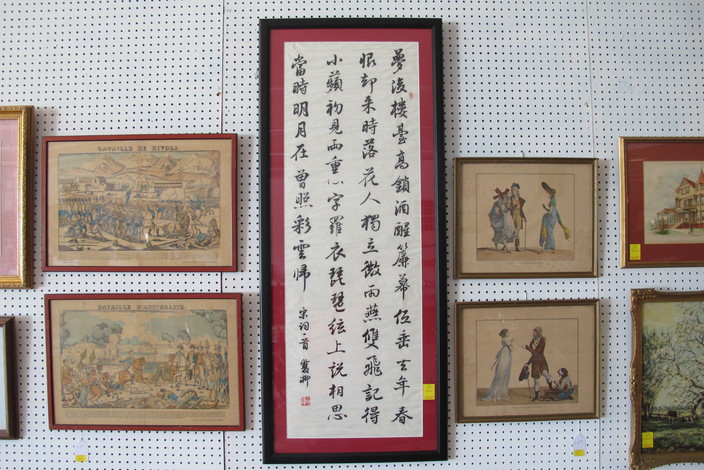 BATAILLE DE RIVOLI.
BATAILLE D'AUSTERLITZ.
夢後楼臺高鎖酒醒簾幕低垂去年春
恨却来時落花人獨立微雨燕雙飛記得
小蘋初見兩重心字羅衣琵琶絃上説相思
當時明月在曾照彩雲歸
宋词一首